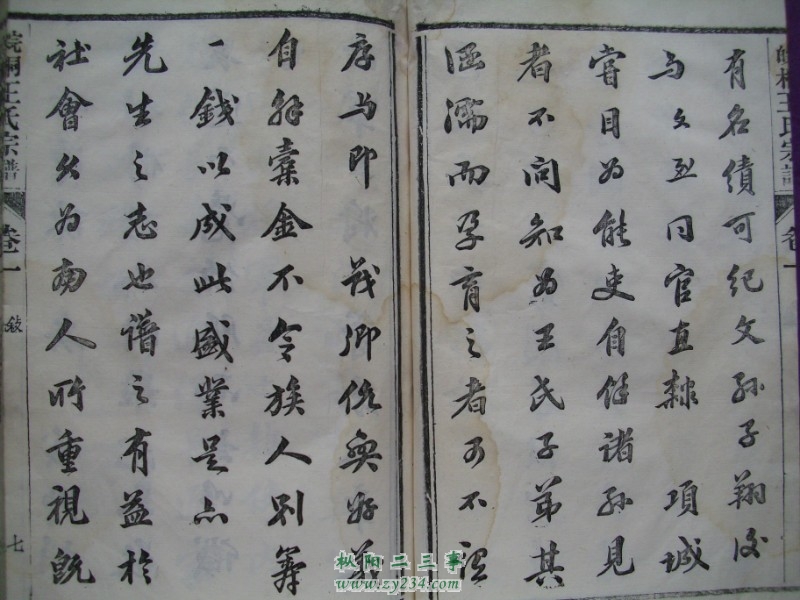 皖桐王氏宗譜
卷一
有名績可紀文孫子翔後
与文烈同官直隸 項城
嘗目为能吏自餘諸孫見
者不问知为王氏子弟其
涵濡而孕育之者可不謂
序与即 茂卿慷慨好義
自解橐金不令族人别筹
一錢以成此盛業是亦
先生之志也譜之有益於
社會久为南人所重視既
皖桐王氏宗譜
卷一
敍
七
枞阳二三事
www.zy234.com